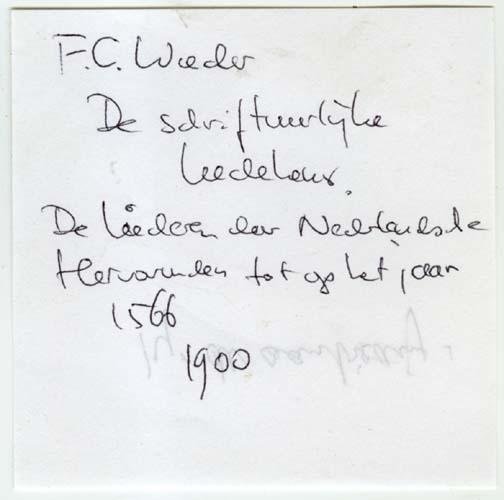 F.C. Wieder
De schriftuurlijke
Liedekens.
De liederen der Nederlandsche
Hervormden tot op het jaar
1566
1900